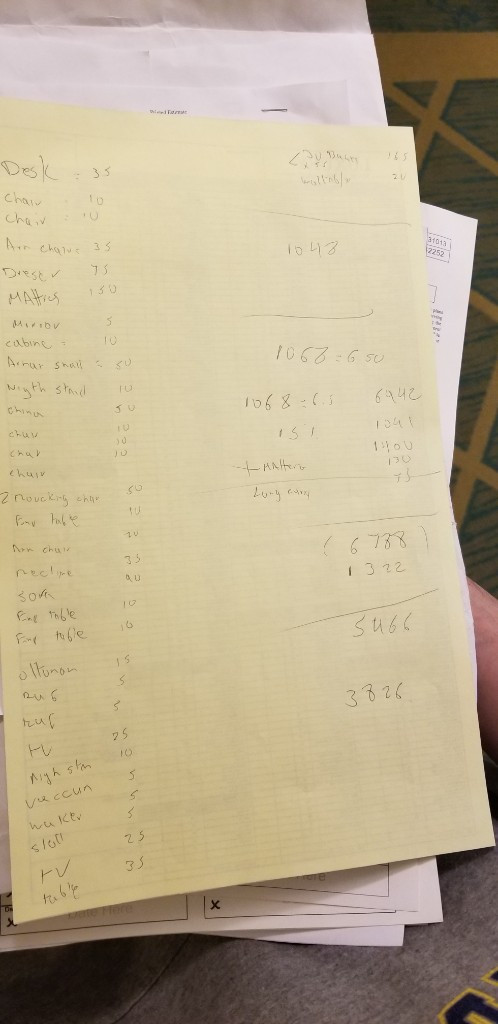 Desk = 35
chair = 10
chair = 10
Arm chaire 35
Dreser 75
MAttres 150
Mirror 5
cabine = 10
Arruar small = 50
Nigth stand 10
china 50
chair 10
chair 10
chair 10
2 roucking chair 50
End table 10
Arm chair 20
recline 35
sofa 90
End table 10
End table 10
ottoman 15
Rug 5
rug 5
TV 25
nigh stan 10
vaccun 5
walker 5
stoll 5
TV 25
table 35
165
20
1048
1068 = 6.50
1068 = 6.5 6942
15% 1041
1400
+ MAttres 150
Long carry 75
( 6788 )
1322
5466
3826
31013
2252
Date Here
x
x